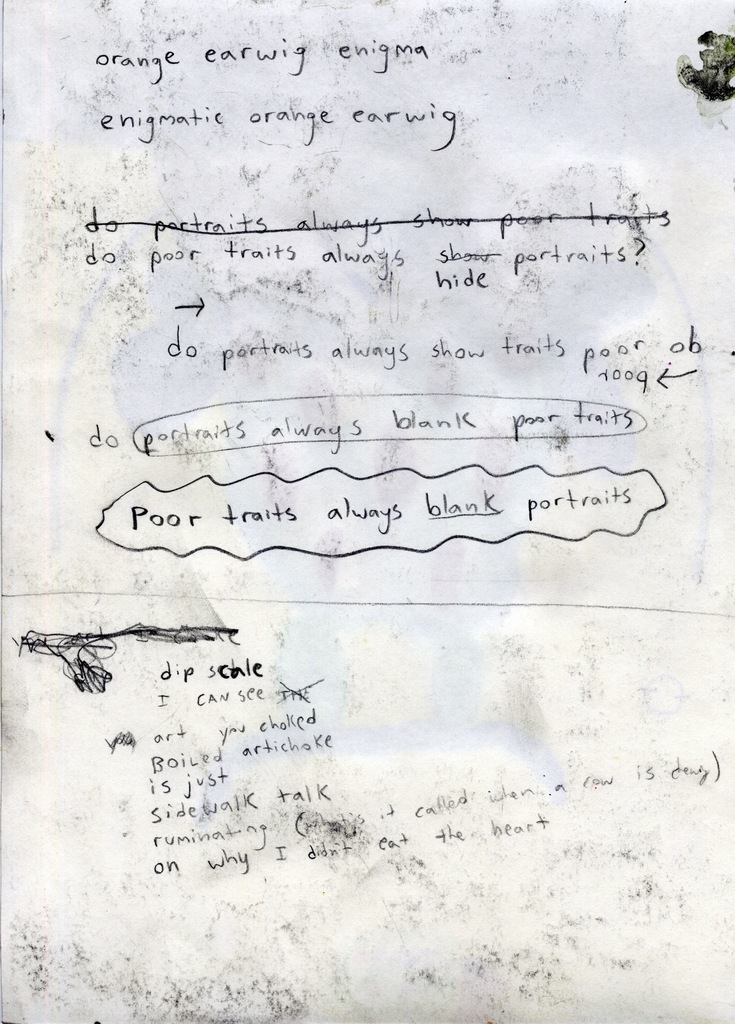 orange earwig enigma
enigmatic orange earwig
do portraits always show poor traits
do poor traits always show portraits?
hide
do portraits always show traits poor ob
roop
do portraits always blank poor traits
Poor traits always blank portraits
dip scale
I CAN SEE THE
you art you choked
BOILED artichoke
is just
sidewalk talk
ruminating (that's it called when a cow is
on why I didn't eat the heart